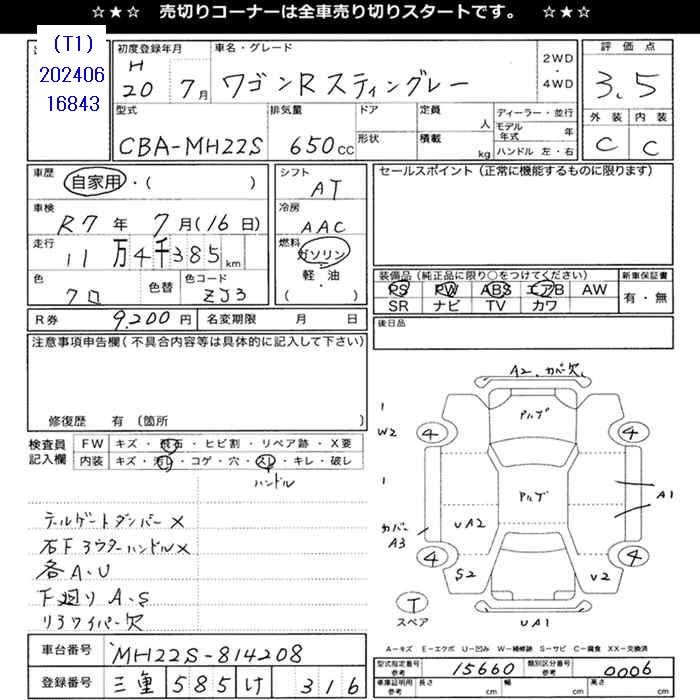 ☆★☆ 売切りコーナーは全車売り切りスタートです。 ☆★☆
(T1)
202406
16843
初度登録年月
H
20 7月
車名・グレード
ワゴンR スティングレー
2WD
・
4WD
評価点
3.5
外装 内装
C C
型式
CBA-MH22S
排気量
650cc
ドア
形状
定員
人
積載
kg
ディーラー・並行
モデル年式 年
ハンドル 左・右
車歴
自家用・( )
車検
R7年 7月(16日)
走行
11万4千385km
色
クロ
色替
色コード
ZJ3
シフト
AT
冷房
AAC
燃料
ガソリン
軽・油
( )
セールスポイント(正常に機能するものに限ります)
装備品(純正品に限り○をつけてください)
PS PW ABS エアB AW
SR ナビ TV カワ
新車保証書
有・無
R券 9,200円
名変期限 月 日
後日品
注意事項申告欄(不具合内容等は具体的に記入して下さい)
修復歴 有〔箇所 〕
検査員
記入欄
FW キズ・飛石・ヒビ割・リペア跡・X要
内装 キズ・汚れ・コゲ・穴・スレ・キレ・破レ
ハンドル
テールゲートダンパーX
右F アウターハンドルX
各A.U
下廻りA.S
リアワイパー欠
A2.カバー欠
アルブ
アルブ
1
W2
1
カバー
A3
4
4
4
4
UA2
A1
S2
V2
T
スペア
UA1
A-キズ E-エクボ U-凹み W-補修跡 S-サビ C-腐食 XX-交換済
車台番号 MH22S-814208
登録番号 三重 585 け 316
型式指定番号
参考
15660
類別区分番号
参考
0006
車庫証明用
参考
長さ cm
幅 cm
高さ cm